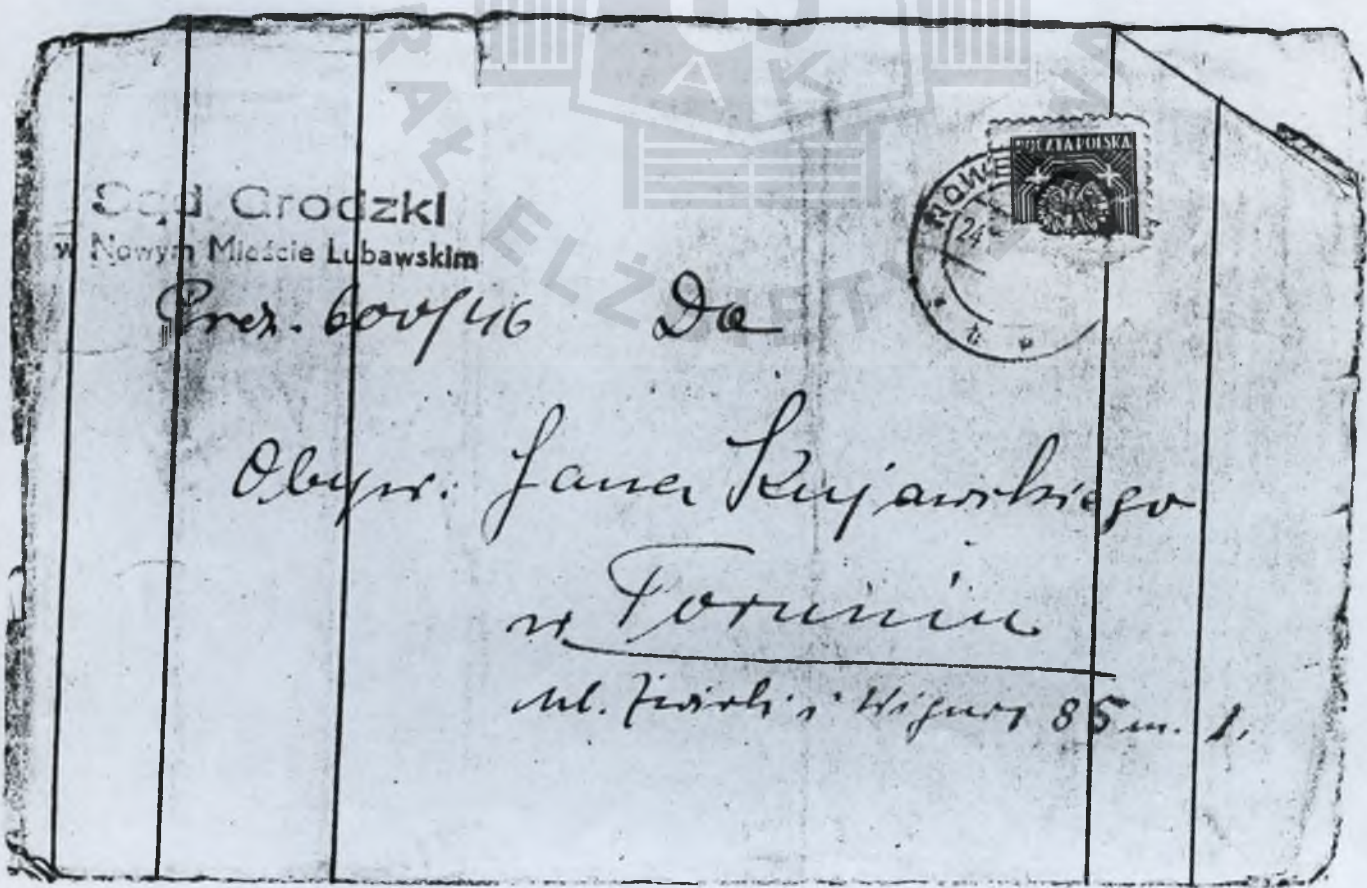 Sąd Grodzki
w Nowym Mieście Lubawskim
Prez. 600/46 Do
POCZTA POLSKA
NOWE
24
Obyw. Jana Kujawskiego
w Toruniu
ul. Żwirki i Wigury 85 m. 1.
AK
ELŻBIETY